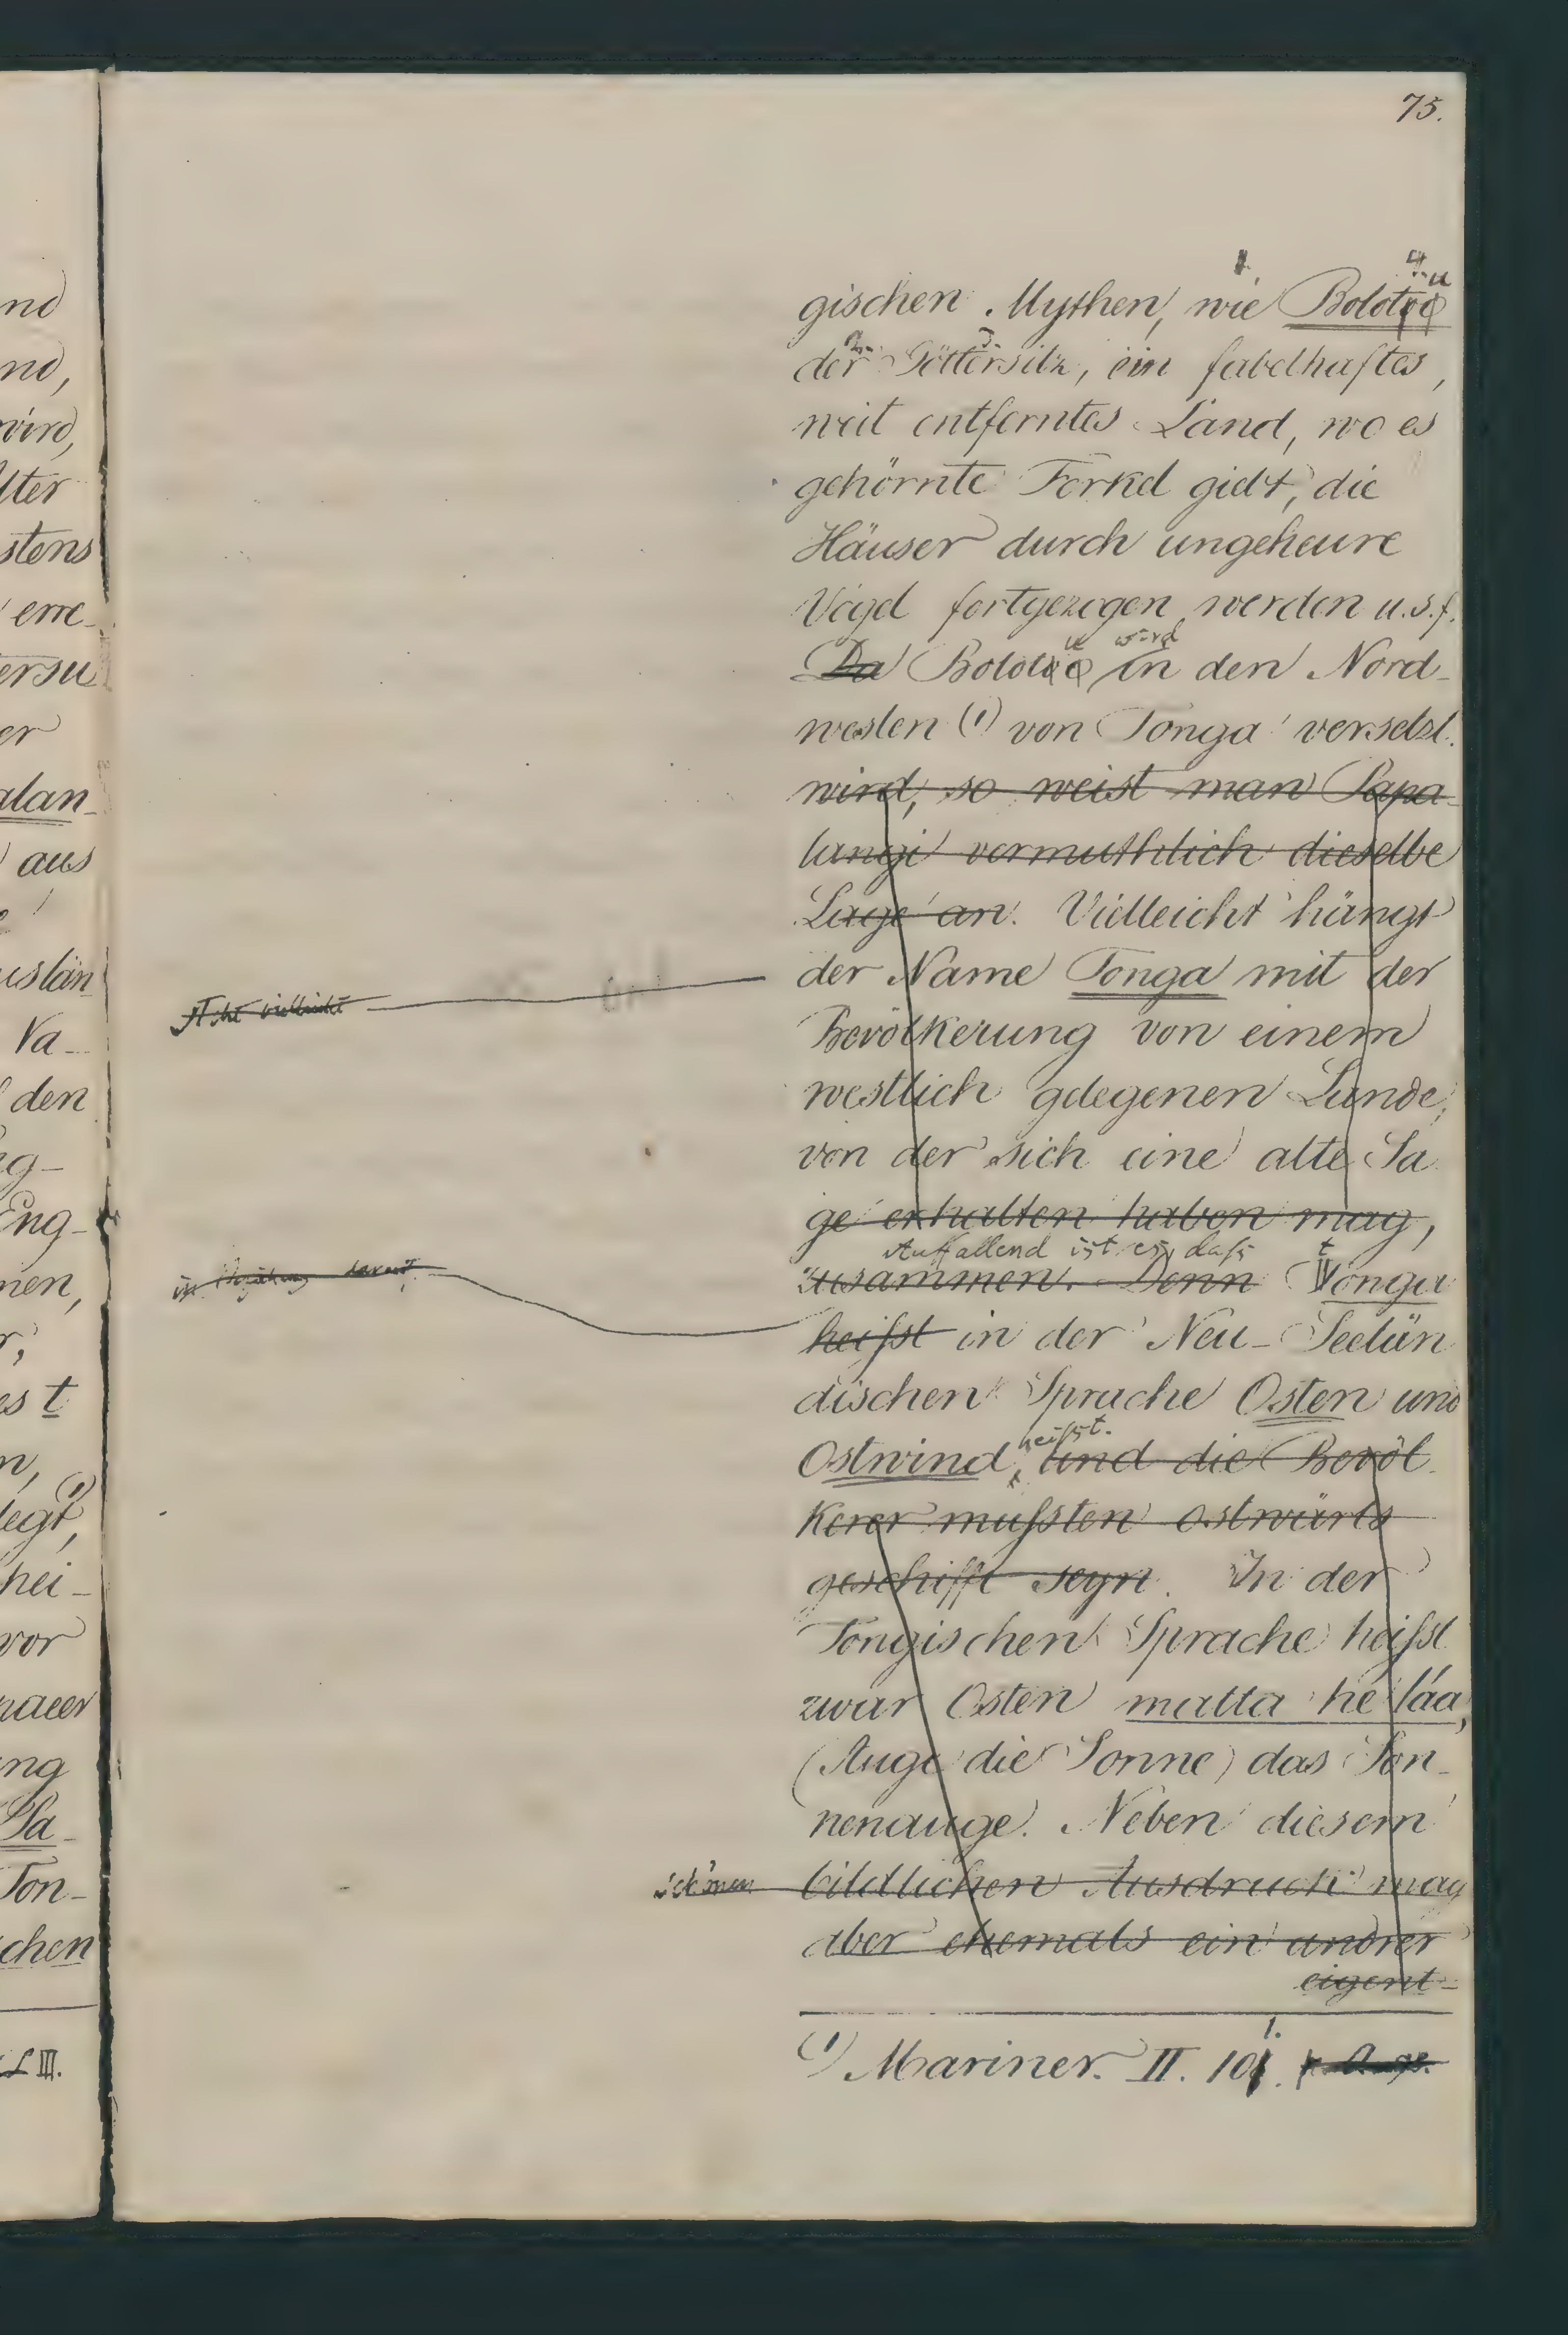 75.
gischen Mythen, wie Bolotu
der Göttersitz, ein fabelhaftes,
weit entferntes Land, wo es
gehörnte Ferkel giebt, die
Häuser durch ungeheure
Vögel fortgezogen werden u.s.f.
Da Bolotu wird in den Nord-
westen (1) von Tonga versetzt.
wird, so weist man Papa-
langi vermuthlich dieselbe
Lage an. Vielleicht hängt
der Name Tonga mit der
Bevölkerung von einem
westlich gelegenen Lande,
von der sich eine alte Sa
ge erhalten haben mag,
Auffallend ist es, daß t
zusammen. Denn Tonga
heißt in der Neu-Seelän
dischen Sprache Osten und
heißt.
Ostwind, und die Bevöl
kerer mußten ostwärts
geschifft seyn. In der
Tongischen Sprache heißt
zwar Osten matta he láa,
(Auge die Sonne) das Son-
nenauge. Neben diesem
schönen bildlichen Ausdruck mag
aber ehemals ein andrer
eigent-
(1) Mariner. II. 101.
nd
nd,
wird,
lter
stens
erre-
ersu
er
alan-
aus
uslän
Va-
den
Eng-
men,
r,
es t
n,
legt, (1)
hei-
vor
ng
Sa-
Ton-
chen
LIII.